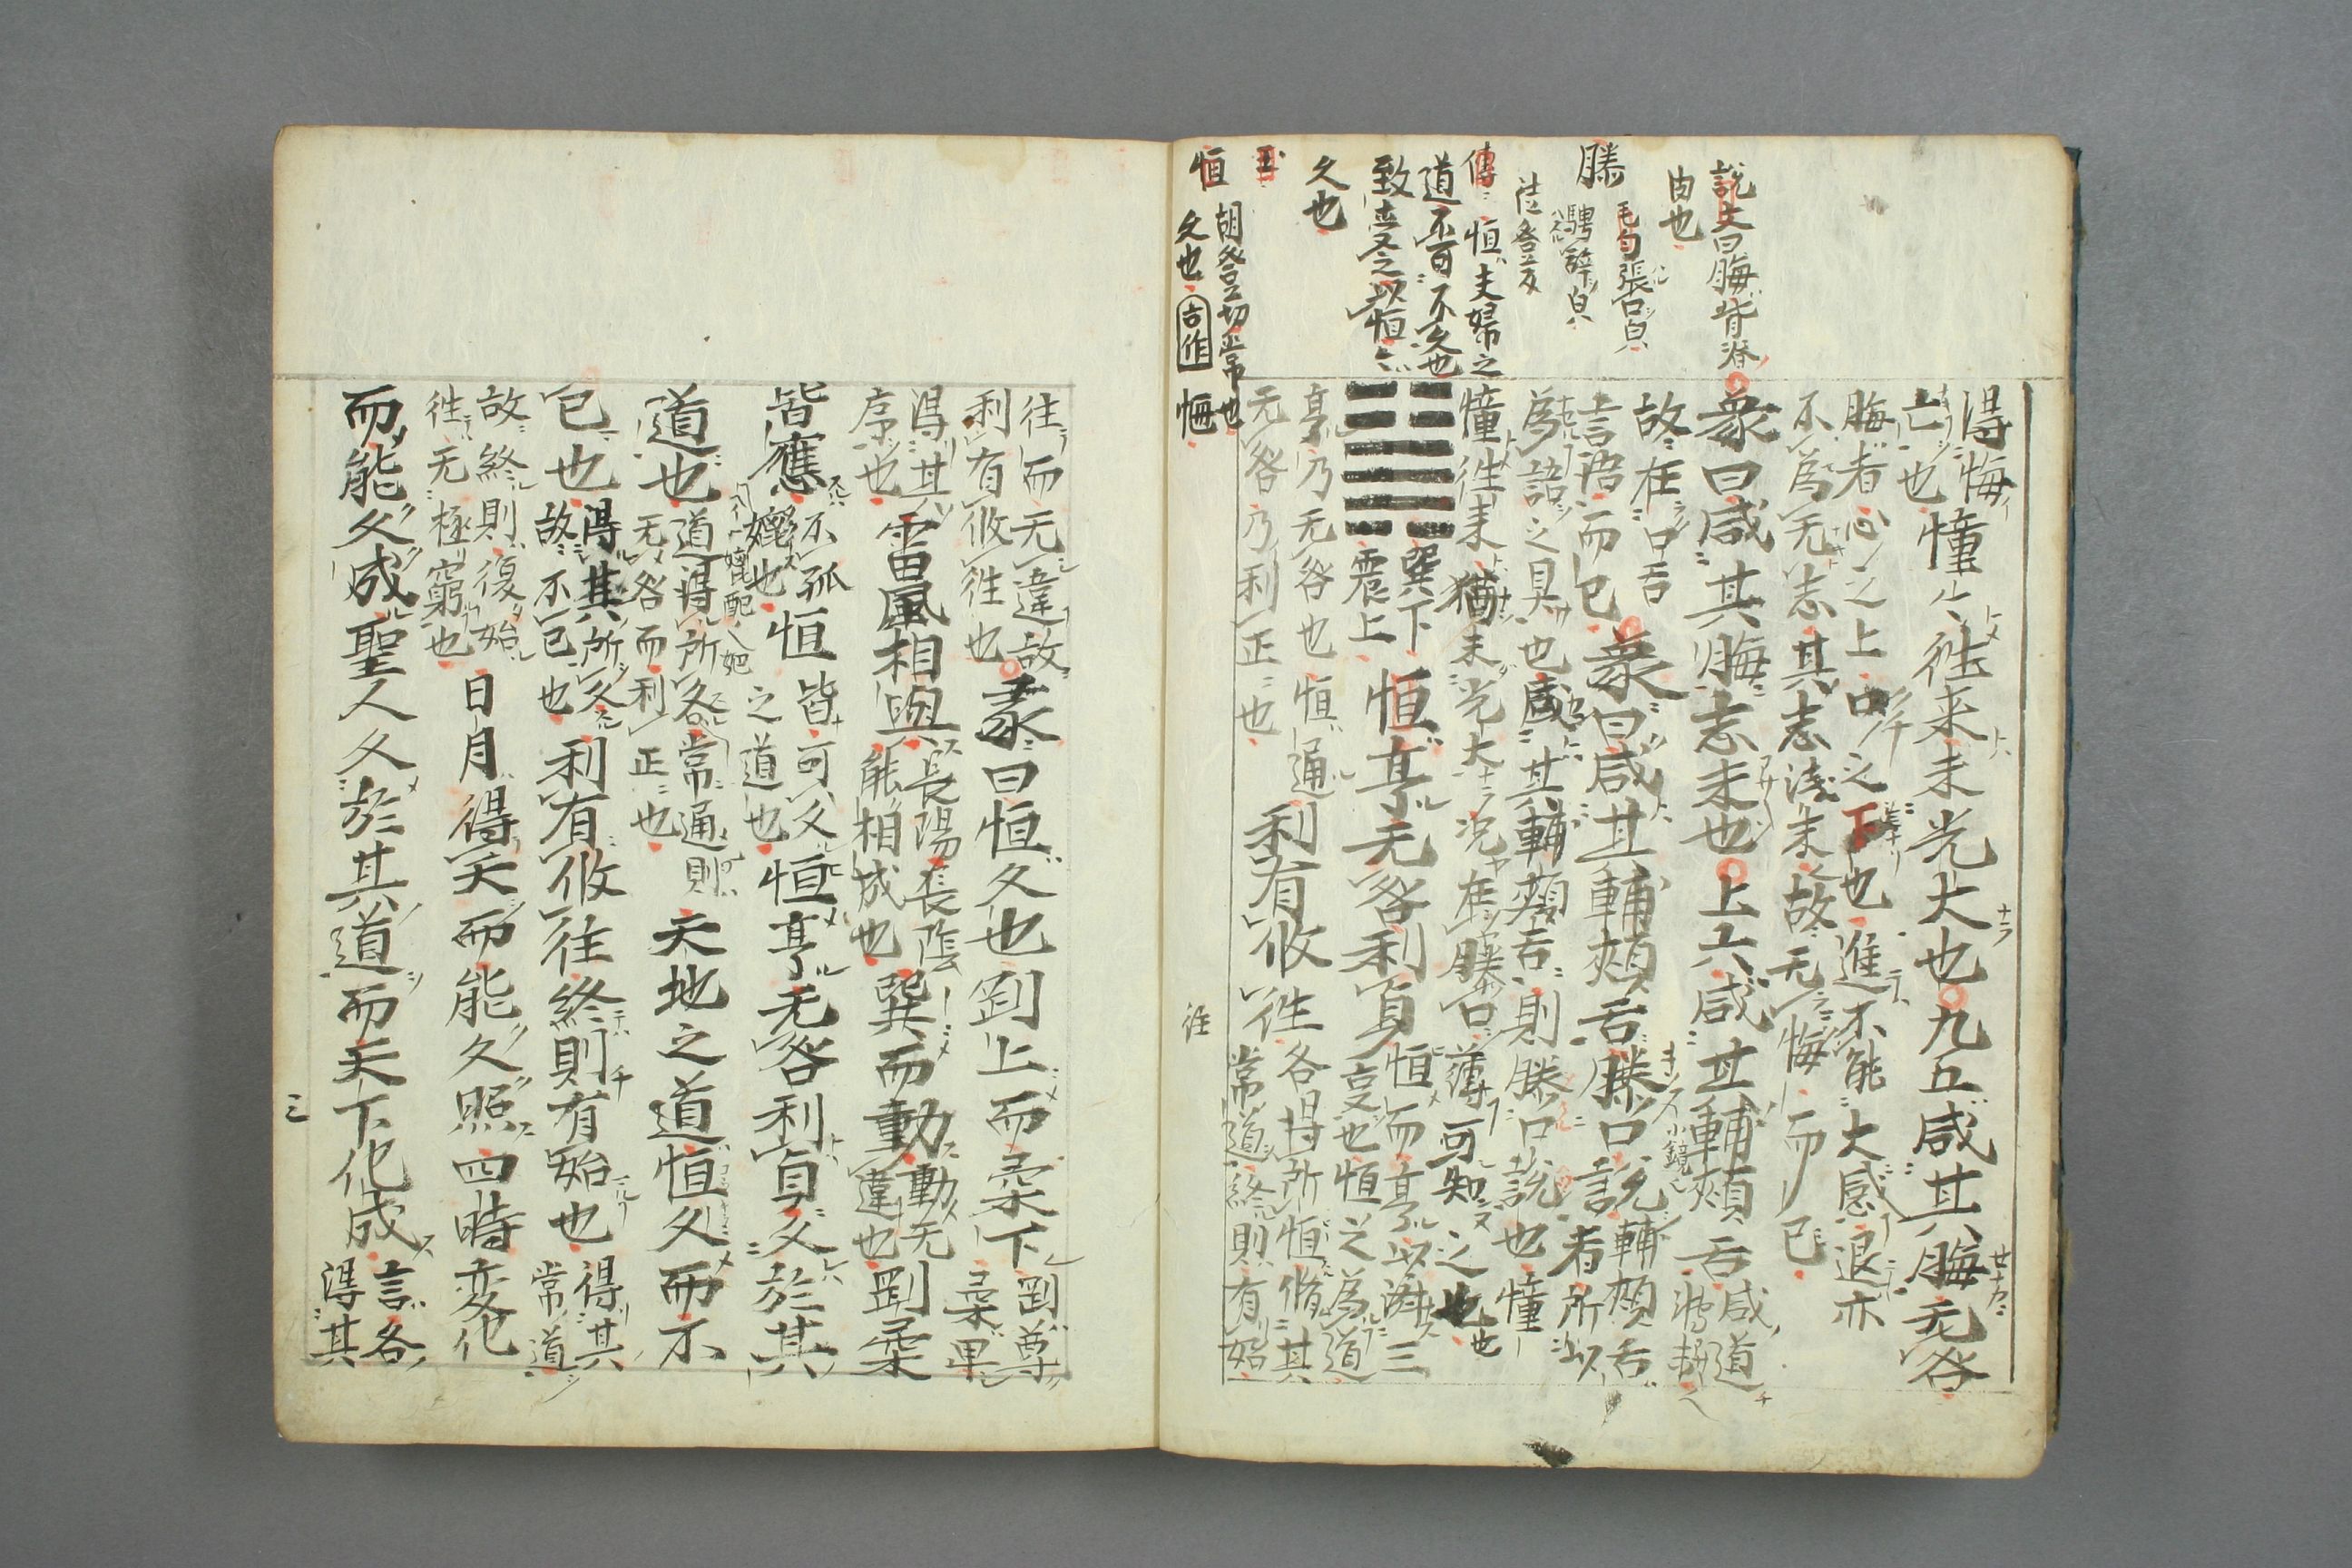 説文曰脢背脊
肉也
滕
毛勻張口皃
騁辝皃
徒登反
傳 恒夫婦之
道不可不久也
致受之以恒〻
久也
玉
恒
胡登切常也
久也
古作
得悔
亡也
憧〻徃来未光大也九五咸其脢无咎
脢者心之上口之下也進不能大感退亦
不為无志其志淺末故无悔而已
象曰咸其脢志末也上六咸其輔頰舌
咸道
故在口舌
言語而已
象曰咸其輔頰舌滕口說
輔頰舌
者所以
為語之具也咸其輔頰舌則滕口說也憧
憧徃来猶未光大况在滕口薄可知之也
巽下
震上
恒亨无咎利貞
恒而亨以濟三
亨也恒之為道
亨乃无咎也恒通
无咎乃利正也
利有攸徃
各得所恒脩其
常道終則有始
徃
往而无違故
利有攸徃也
彖曰恒久也剛上而柔下
剛尊
柔卑
得其
序也
雷風相與
長陽長陰
能相成也
巽而動
動无
違也
剛柔
皆應
不孤
媲也
恒
皆可久
之道也
恒亨无咎利貞久於其
道也
道得所久常通則
无咎而利正也
天地之道恒久而不
已也
得其所久
故不已也
利有攸往終則有始也
得其
常道
故終則復始
徃无極窮也
日月得天而能久照四時変化
而能久成聖人久於其道而天下化成
言各
得其
三